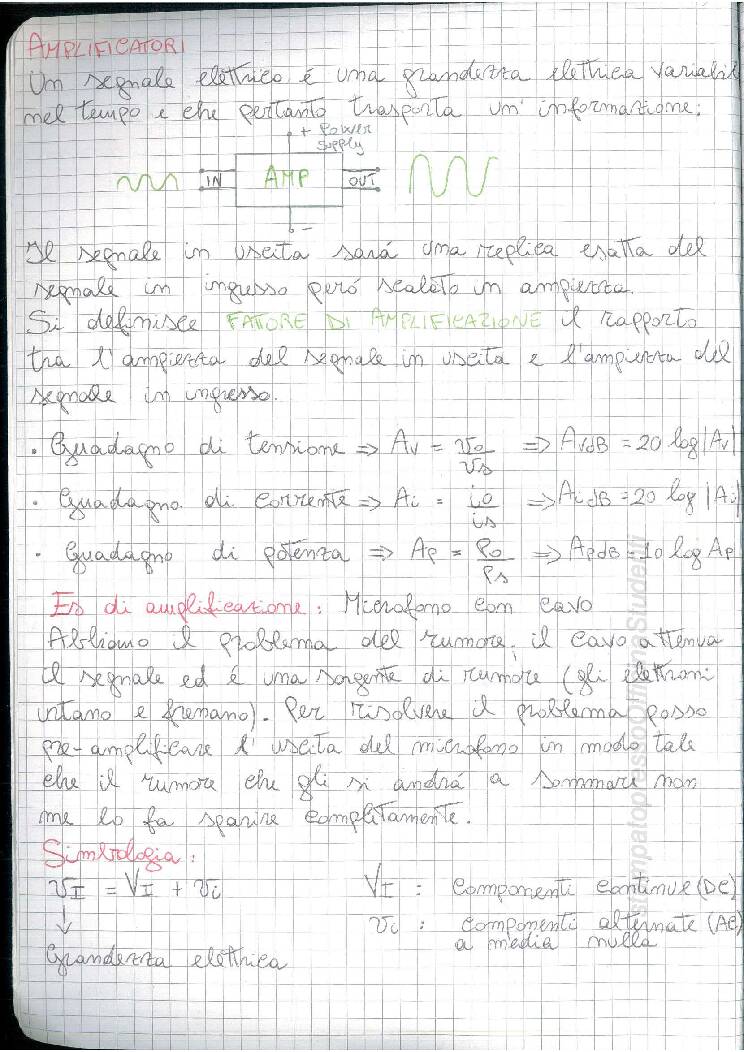 AMPLIFICATORI
Un segnale elettrico é una grandezza elettrica variabil
nel tempo e che pertanto trasporta un'informazione:
+ Power
supply
IN AMP OUT
-
Il segnale in uscita sará una replica esatta del
segnale in ingresso peró scalato in ampiezza.
Si definisce FATTORE DI AMPLIFICAZIONE il rapporto
tra l'ampiezza del segnale in uscita e l'ampiezza del
segnale in ingresso.
• Guadagno di tensione => Av = vo/vs => AvdB = 20 log|Av|
• Guadagno di corrente => Ai = io/is => AidB = 20 log |Ai|
• Guadagno di potenza => Ap = Po/Ps => ApdB = 10 log Ap
Es di amplificazione: Microfono con cavo
Abbiamo il problema del rumore; il cavo attenua
il segnale ed é una sorgente di rumore (gli elettroni
urtano e frenano). Per risolvere il problema posso
pre-amplificare l'uscita del microfono in modo tale
che il rumore che gli si andrá a sommare non
me lo fa sparire complitamente.
Simbologia:
vI = VI + vi VI : componenti continue (DC)
↓ vi : componenti alternate (AC)
a media nulla
Grandezza elettrica
stampatopressoOfficinaStudenti